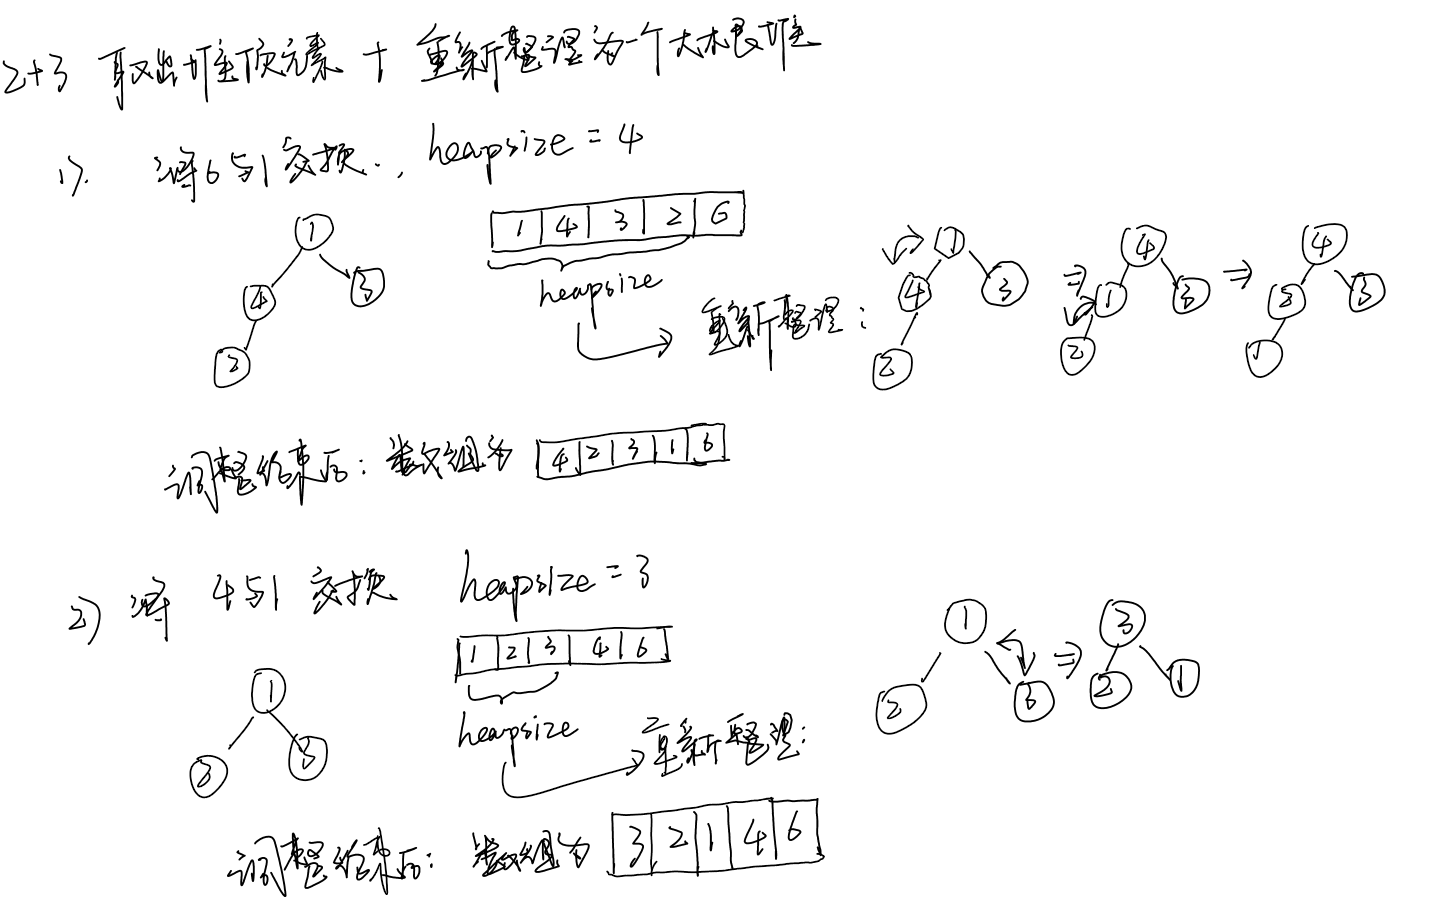 2+3 取出堆顶元素 + 重新整理为一个大根堆
1). 将6与1交换., heapsize = 4
1 4 3 2 6
1
4 3
2
heapsize
重新整理:
1
4 3
2
⇒
4
1 3
2
⇒
4
2 3
1
调整结束后: 数组为 4 2 3 1 6
2) 将 4与1 交换 heapsize = 3
1 2 3 4 6
1
2 3
heapsize
重新整理:
1
2 3
⇒
3
2 1
调整结束后: 数组为 3 2 1 4 6